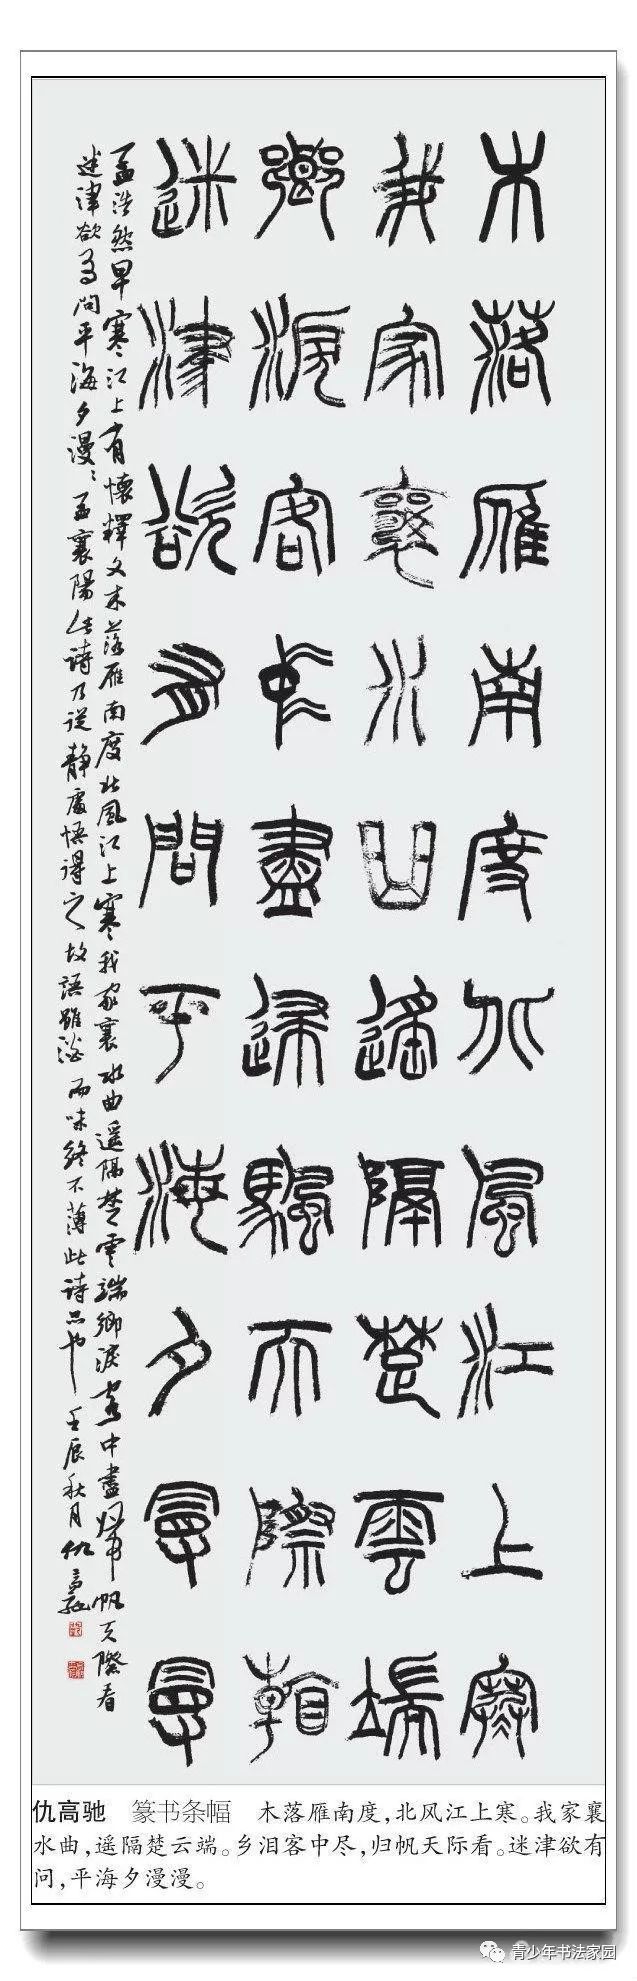 木落雁南度北風江上寒
我家襄水曲遙隔楚雲端
鄉淚客中盡歸颿天際看
迷津欲有問平海夕曼曼
孟浩然早寒江上有懷釋文木落雁南度北風江上寒我家襄水曲遥隔楚雲端鄉淚客中盡歸帆天際看
迷津欲有問平海夕漫漫孟襄陽作詩乃從静處悟得之故語雖淡而味終不薄此詩品也壬辰秋月仇高馳
仇高驰 篆书条幅 木落雁南度,北风江上寒。我家襄
水曲,遥隔楚云端。乡泪客中尽,归帆天际看。迷津欲有
问,平海夕漫漫。
青少年书法家园